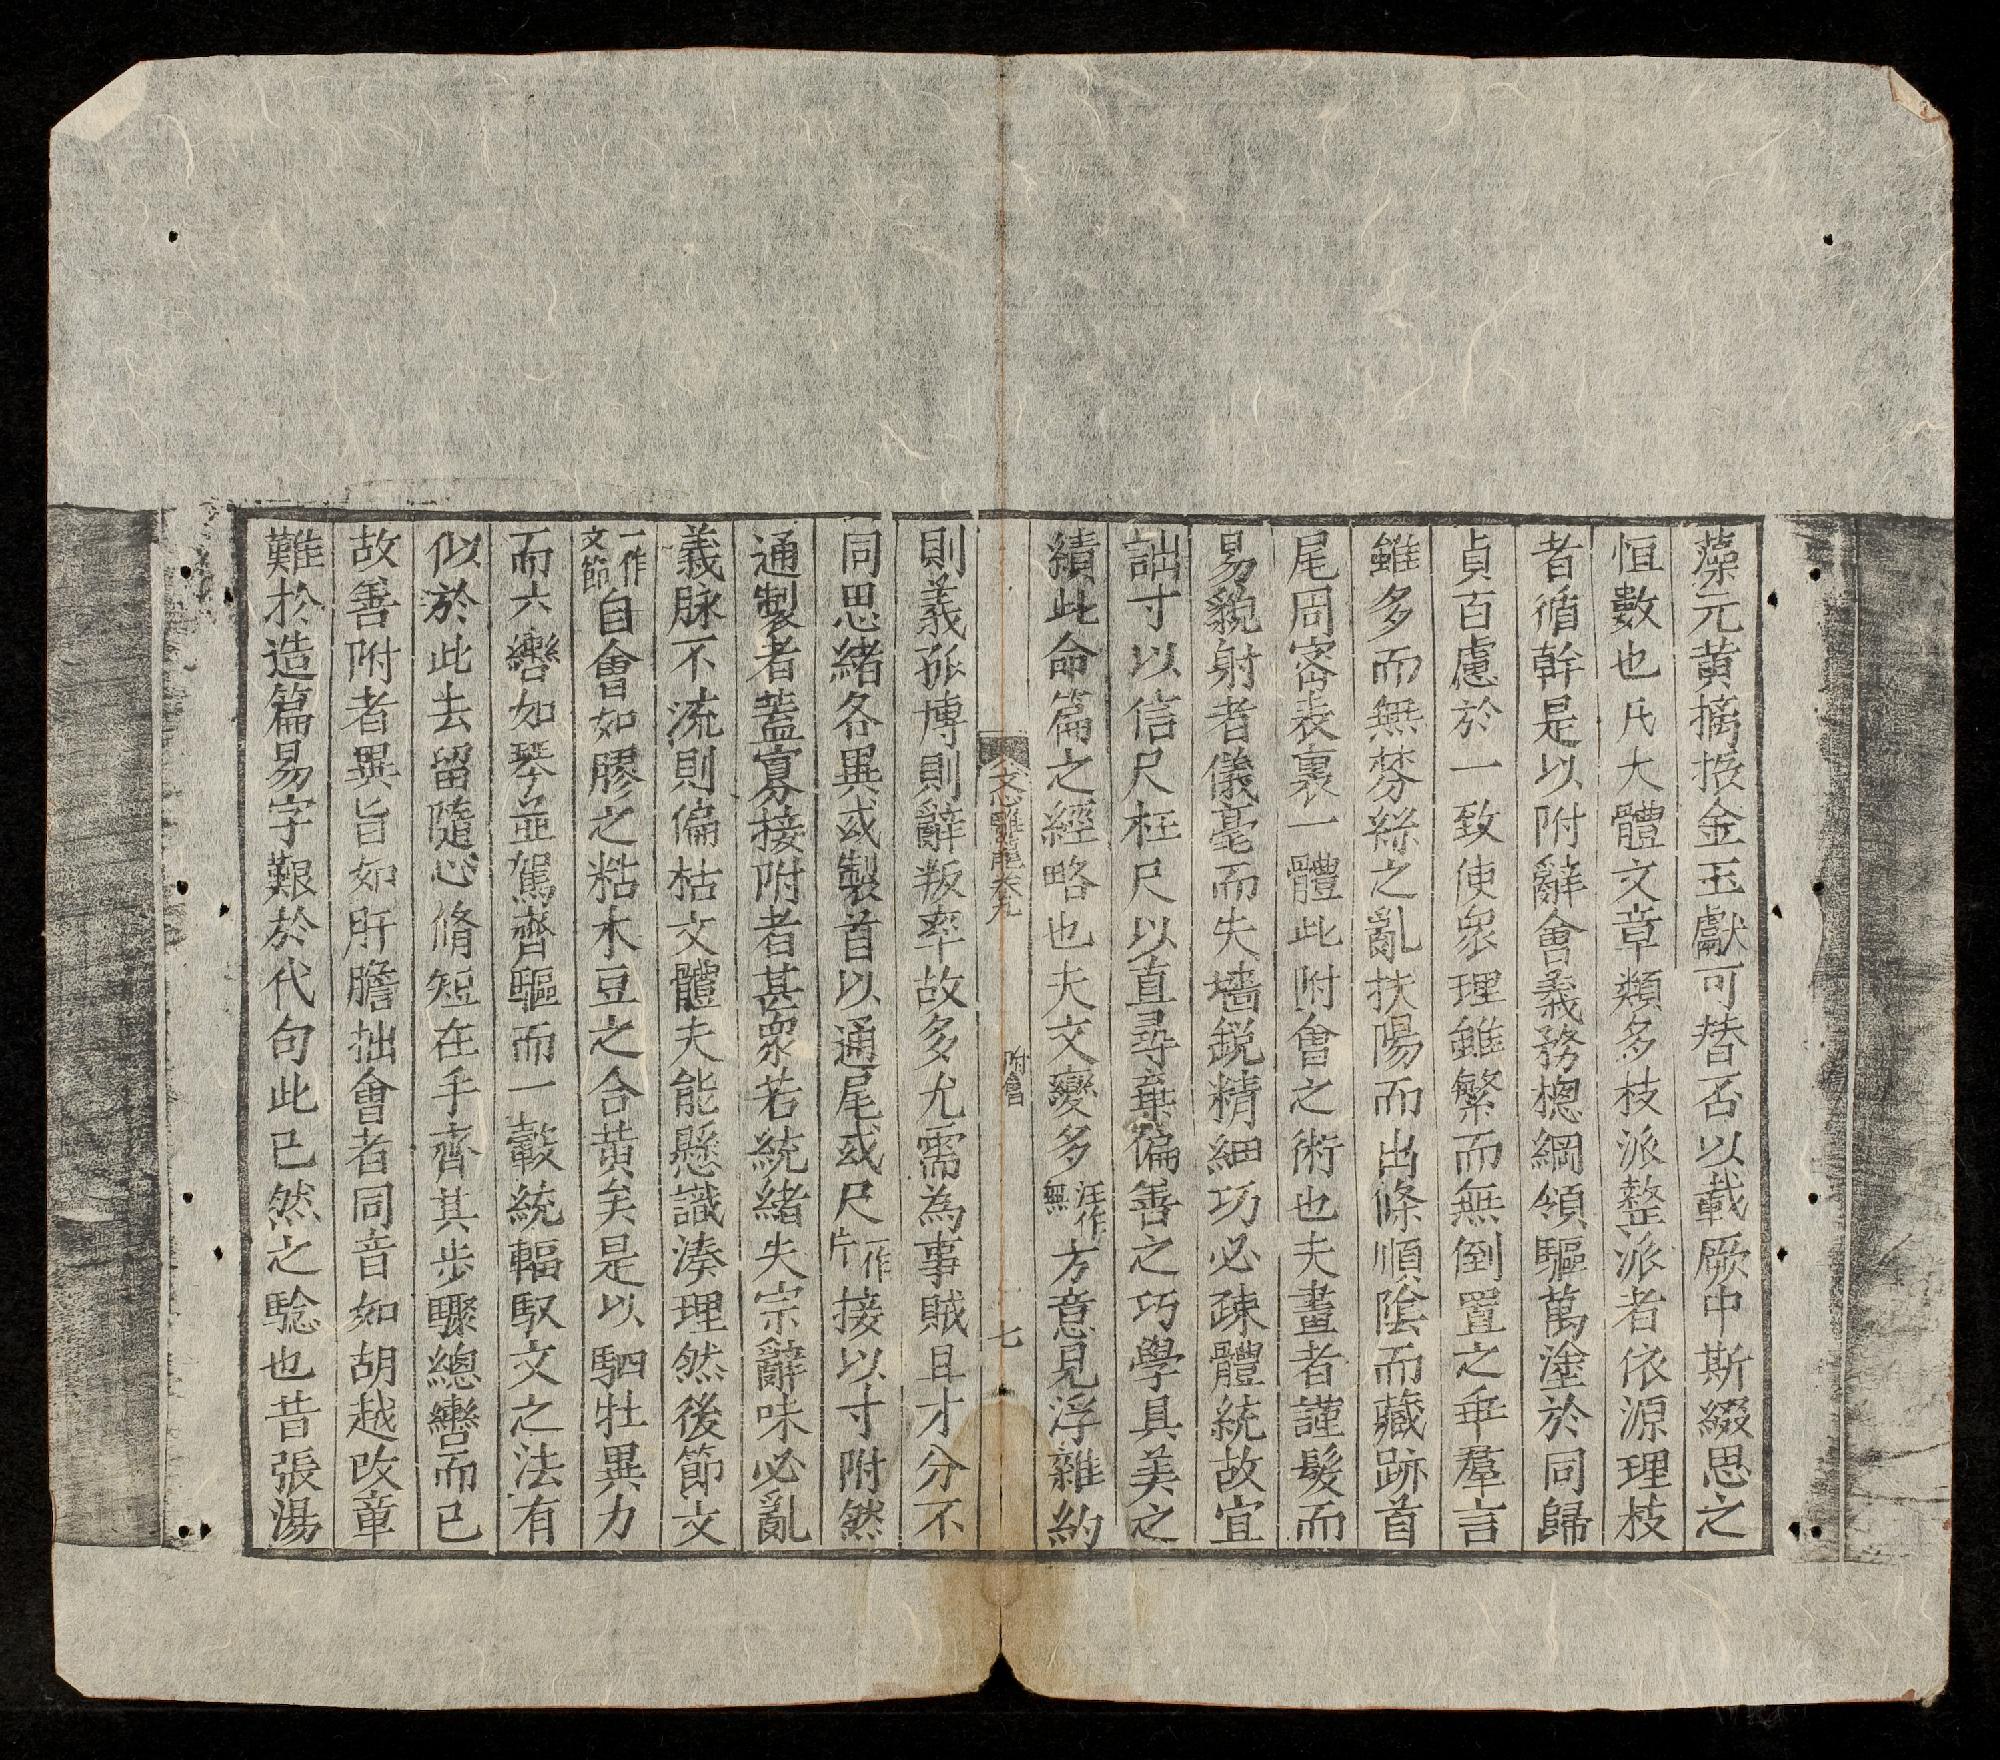 藻元黄摛振金玉獻可替否以載厥中斯綴思之
恒數也凡大體文章類多枝派整派者依源理枝
者循幹是以附辭會義務揔綱領驅萬塗於同歸
貞百慮於一致使衆理雖繁而無倒置之乖羣言
雖多而無棼絲之亂扶陽而出條順陰而藏跡首
尾周密表裏一體此附會之術也夫畫者謹髮而
易貌射者儀毫而失墻鋭精細巧必疎體統故宜
詘寸以信尺枉尺以直尋棄偏善之巧學具美之
績此命篇之經略也夫文變多汪作無方意見浮雜約
文心雕龍卷九 附會 七
則義孤博則辭叛率故多尤需為事賊且才分不
同思緒各異或製首以通尾或尺一作片接以寸附然
通製者葢寡接附者甚衆若統緒失宗辭味必亂
義脉不流則偏枯文體夫能懸識湊理然後節文
一作文節自會如膠之粘木豆之合黄矣是以駟牡異力
而六轡如琴並駕齊驅而一轂統輻馭文之法有
似於此去留隨心脩短在手齊其步驟總轡而已
故善附者異旨如肝膽拙會者同音如胡越改章
難於造篇易字艱於代句此已然之驗也昔張湯